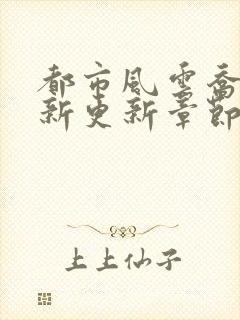 都市风云乔
新更新章节
上上仙子